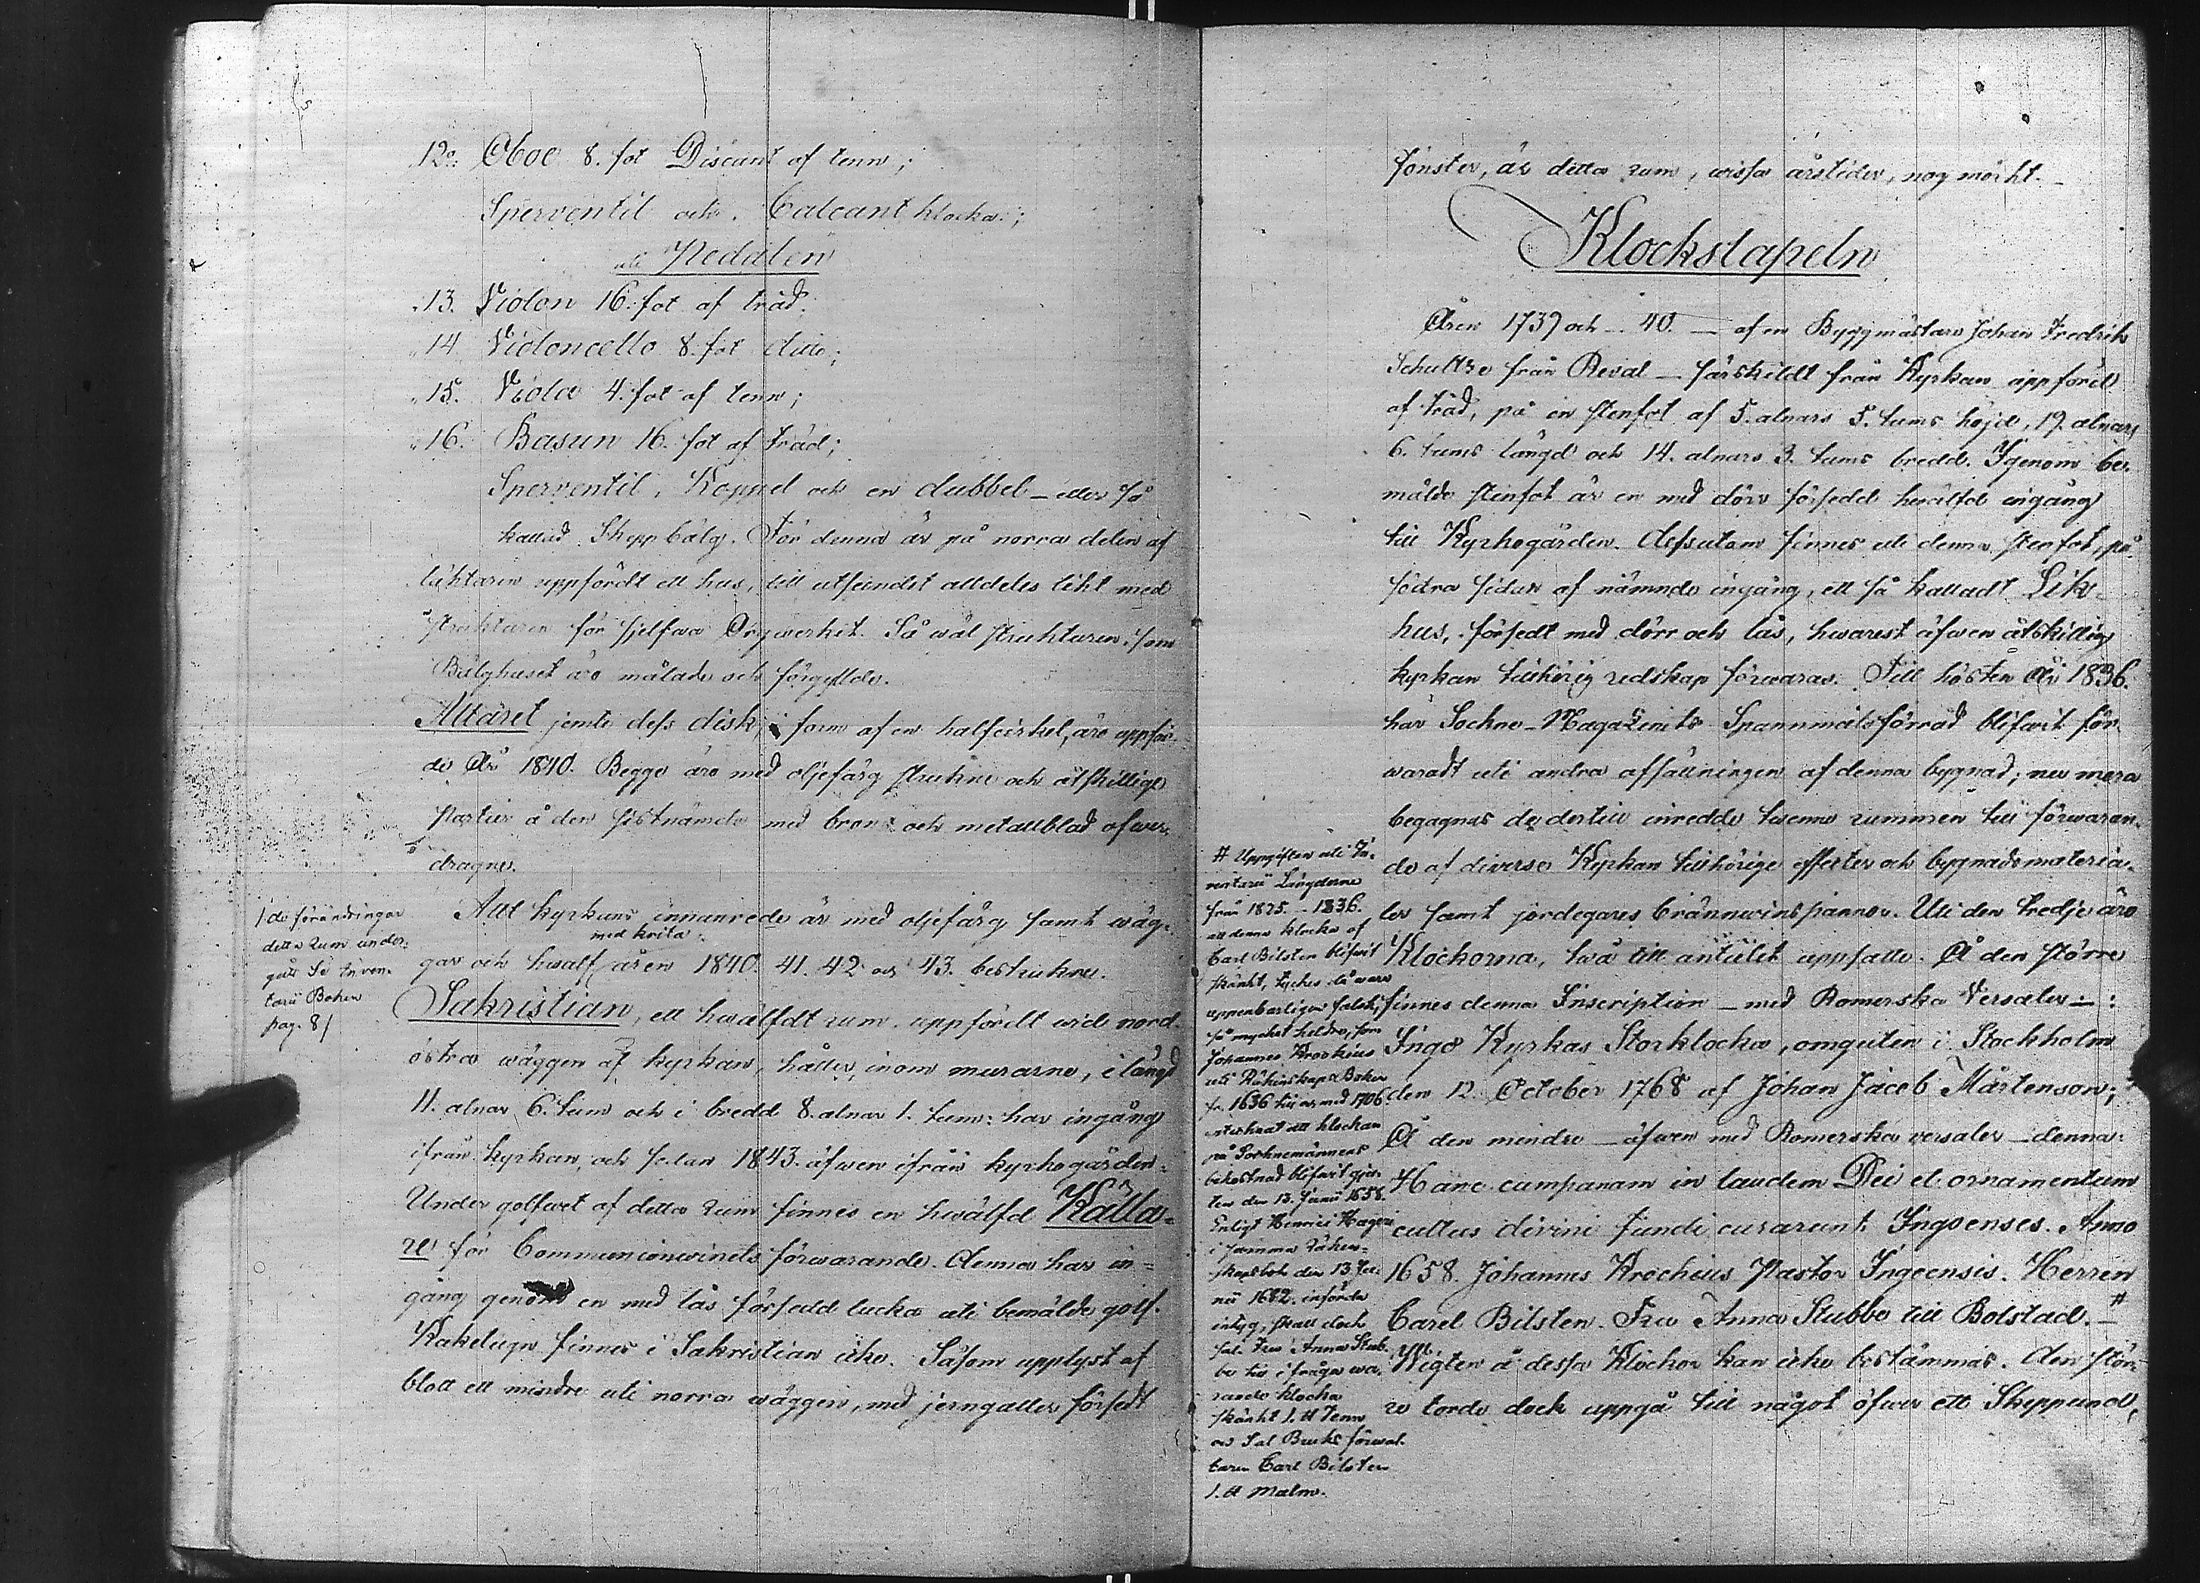 12o. Oboe 8. fot Discant af tenn;
Sperventil och Calcant klocka;
uti Pedalen
13. Violon 16. fot af träd.
14 Violoncello 8. fot ditto;
15. Viola 4. fot af tenn;
16. Basun 16. fot af träd;
Sperventil, Koppel och en dubbel – eller så
kallad Skeppbälg. För denna är på norra delen af
läktaren uppfördt ett hus, till utseendet alldeles likt med
strukturen för sjelfva Orgverket. Så wäl strukturen som
Bälghuset äro målade och förgyllde.
Altaret jemte dess disk, i form af en halfcirkel, äro uppför-
de År 1840. Begge äro med oljefärg strukne och åtskillige
Partier å den sistnämda med bronz och metallblad öfwer-
dragne.
Allt kyrkans innanrede är med oljefärg samt wäg-
med krita
gar och hwalf åren 1840. 41. 42 och 43. bestrukne.
/de förändringar
detta rum under-
gått Se Inven-
tarii Boken
pag. 8/
Sakristian, ett hwälfdt rum uppfördt wid nord-
östra wäggen af kyrkan, håller, inom murarne, i längd
11. alnar 6. tum och i bredd 8. alnar 1. tum: har ingång
ifrån kyrkan, och sedan 1843. äfwen ifrån kyrkogården.
Under golfwet af detta rum finnes en hwälfd Källa-
re för Communionwinets förwarande. Denna har in-
gång genom en med lås försedd lucka uti bemälde golf.
Kakelugn finnes i Sakristian icke. Såsom upplyst af
blott ett mindre uti norra wäggen, med jerngaller försedt
fönster, är detta rum, wissa årstider, nog mörkt.
Klockstapeln
Åren 1739 och 40. – af en Byggmästare Johan Fredrik
Schultze från Reval – särskildt från Kyrkan uppförd
af träd, på en stenfot af 5. alnars 5. tums höjd, 19. alnars
6. tums längd och 14. alnars 3. tums bredd. Igenom be-
mälde stenfot är en med dörr försedd hwälfd ingång
till Kyrkogården. Dessutom finnes uti denna stenfot, på
södra sidan af nämnde ingång, ett så kalladt Lik-
hus, försedt med dörr och lås, hwarest äfwen åtskillig
kyrkan tillhörig redskap förwaras. Till hösten År 1836.
har Sockne-Magazinets Spannmålsförråd blifwit för-
waradt uti andra afsättningen af denna bygnad; nu mera
begagnas de dertill inredde twenne rummen till förwaran-
de af diverse Kyrkan tillhörige effecter och bygnadsmateria-
ler samt jordegares bränwinspannor. Uti den tredje äro
Klockorna, två till antalet uppsatte. Å den större
finnes denna Inscription – med Romerska Versaler –:
Ingo Kyrkas Storklocka, omguten i Stockholm
den 12. October 1768 af Johan Jacob Mårtenson;
Å den mindre – äfwen med Romerska versaler – denna:
Hanc campanam in laudem Dei et ornamentum
cultus divini fundi curarunt Ingoenses. Anno
1658. Johannes Krochius Pastor Ingoensis. Herren
Carel Bilsten. Fru Anna Stubbe till Bolstad. – #
Wigten å dessa Klockor kan icke bestämmas. Den stör-
re torde dock uppgå till något öfwer ett Skeppund,
# Uppgiften uti In-
ventarii Längderne
från 1825. – 1836.
att denna klocka af
Carl Bilsten blifwit
skänkt, tyckes så wara
uppenbarligen falsk,
så mycket heldre, som
Johannes Krochius
uti Räkenskaps Boken
fr. 1636 till och med 1706
antecknat att klockan
på Socknemännens
bekostnad blifwit gju-
ten den 13. Junii 1658.
Enligt Henrici Hageri
i samma Räken-
skapsbok den 13. Ju-
nii 1682. införda
intyg, skall dock
sal. Fru Anna Stub-
be till i fråga wa-
rande klocka
skänkt 1. ℔ Tenn
och Sal Bruks förwal-
taren Carl Bilsten
1. ℔ malm.